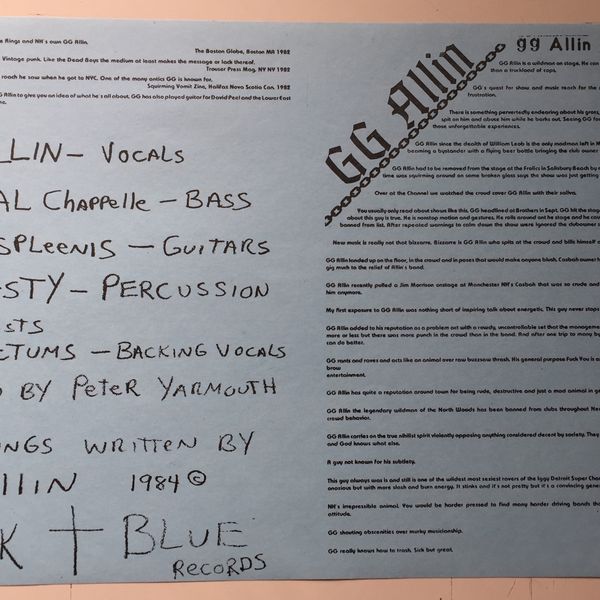 e Rings and NH's own GG Allin.
The Boston Globe, Boston MA 1982
Vintage punk. Like the Dead Boys the medium at least makes the message or lack thereof.
Trouser Press Mag. NY NY 1982
roach he saw when he got to NYC. One of the many antics GG is known for.
Squirming Vomit Zine, Halifax Nova Scotia Can. 1982
GG Allin to give you an idea of what he's all about. GG has also played guitar for David Peel and the Lower East
LLIN — VOCALS
AL Chappelle — BASS
SPLEENIS — GUITARS
STY — PERCUSSION
STS
CTUMS — BACKING VOCALS
D BY Peter YARMOUTH
NGS WRITTEN BY
llIN 1984 ©
K † BLUE
RECORDS
GG Allin
gg Allin
GG Allin is a wildman on stage. He can
than a truckload of raps.
GG's quest for show and music reach for the
frustration.
There is something pervertedly endearing about his gross,
spit on him and abuse him while he barks out. Seeing GG
those unforgettable experiences.
GG Allin since the death of William Loeb is the only madman left in
becoming a bystander with a flying beer bottle bringing the club owner
GG Allin had to be removed from the stage at the Frolics in Salisbury Beach by
time was squirming around on some broken glass says the show was just getting
Over at the Channel we watched the crowd cover GG Allin with their saliva.
You usually only read about shows like this. GG headlined at Brothers in Sept. GG hit the stage
about this guy is true. He is nonstop motion and gestures. He rolls around on the stage and he
banned from list. After repeated warnings to calm down the show were ignored the club owner
New music is really not that bizzare. Bizzare is GG Allin who spits at the crowd and bills himself
GG Allin landed up on the floor, in the crowd and in poses that would make anyone blush. Casbah owner
gig much to the relief of Allin's band.
GG Allin recently pulled a Jim Morrison onstage at Manchester NH's Casbah that was so crude and
him anymore.
My first exposure to GG Allin was nothing short of inspiring talk about energetic. This guy never stops
GG Allin added to his reputation as a problem act with a rowdy, uncontrollable set that the management
more or less but there was more punch in the crowd than in the band. And after one trip to many
can do better.
GG rants and raves and acts like an animal over raw buzzsaw thrash. His general purpose Fuck You is
brow
entertainment.
GG Allin has quite a reputation around town for being rude, destructive and just a mad animal in
GG Allin the legendary wildman of the North Woods has been banned from clubs throughout
crowd behavior.
GG Allin carries on the true nihilist spirit violently opposing anything considered decent by society. They
and God knows what else.
A guy not known for his subtlety.
This guy always was and still is one of the wildest most sexiest rovers of the Iggy Detroit Super
anxious but with more slash and burn energy. It stinks and it's not pretty but it's a convincing
NH's irrepressible animal. You would be harder pressed to find many harder driving bands
attitude.
GG shouting obscenities over murky musicianship.
GG really knows how to trash. Sick but great.